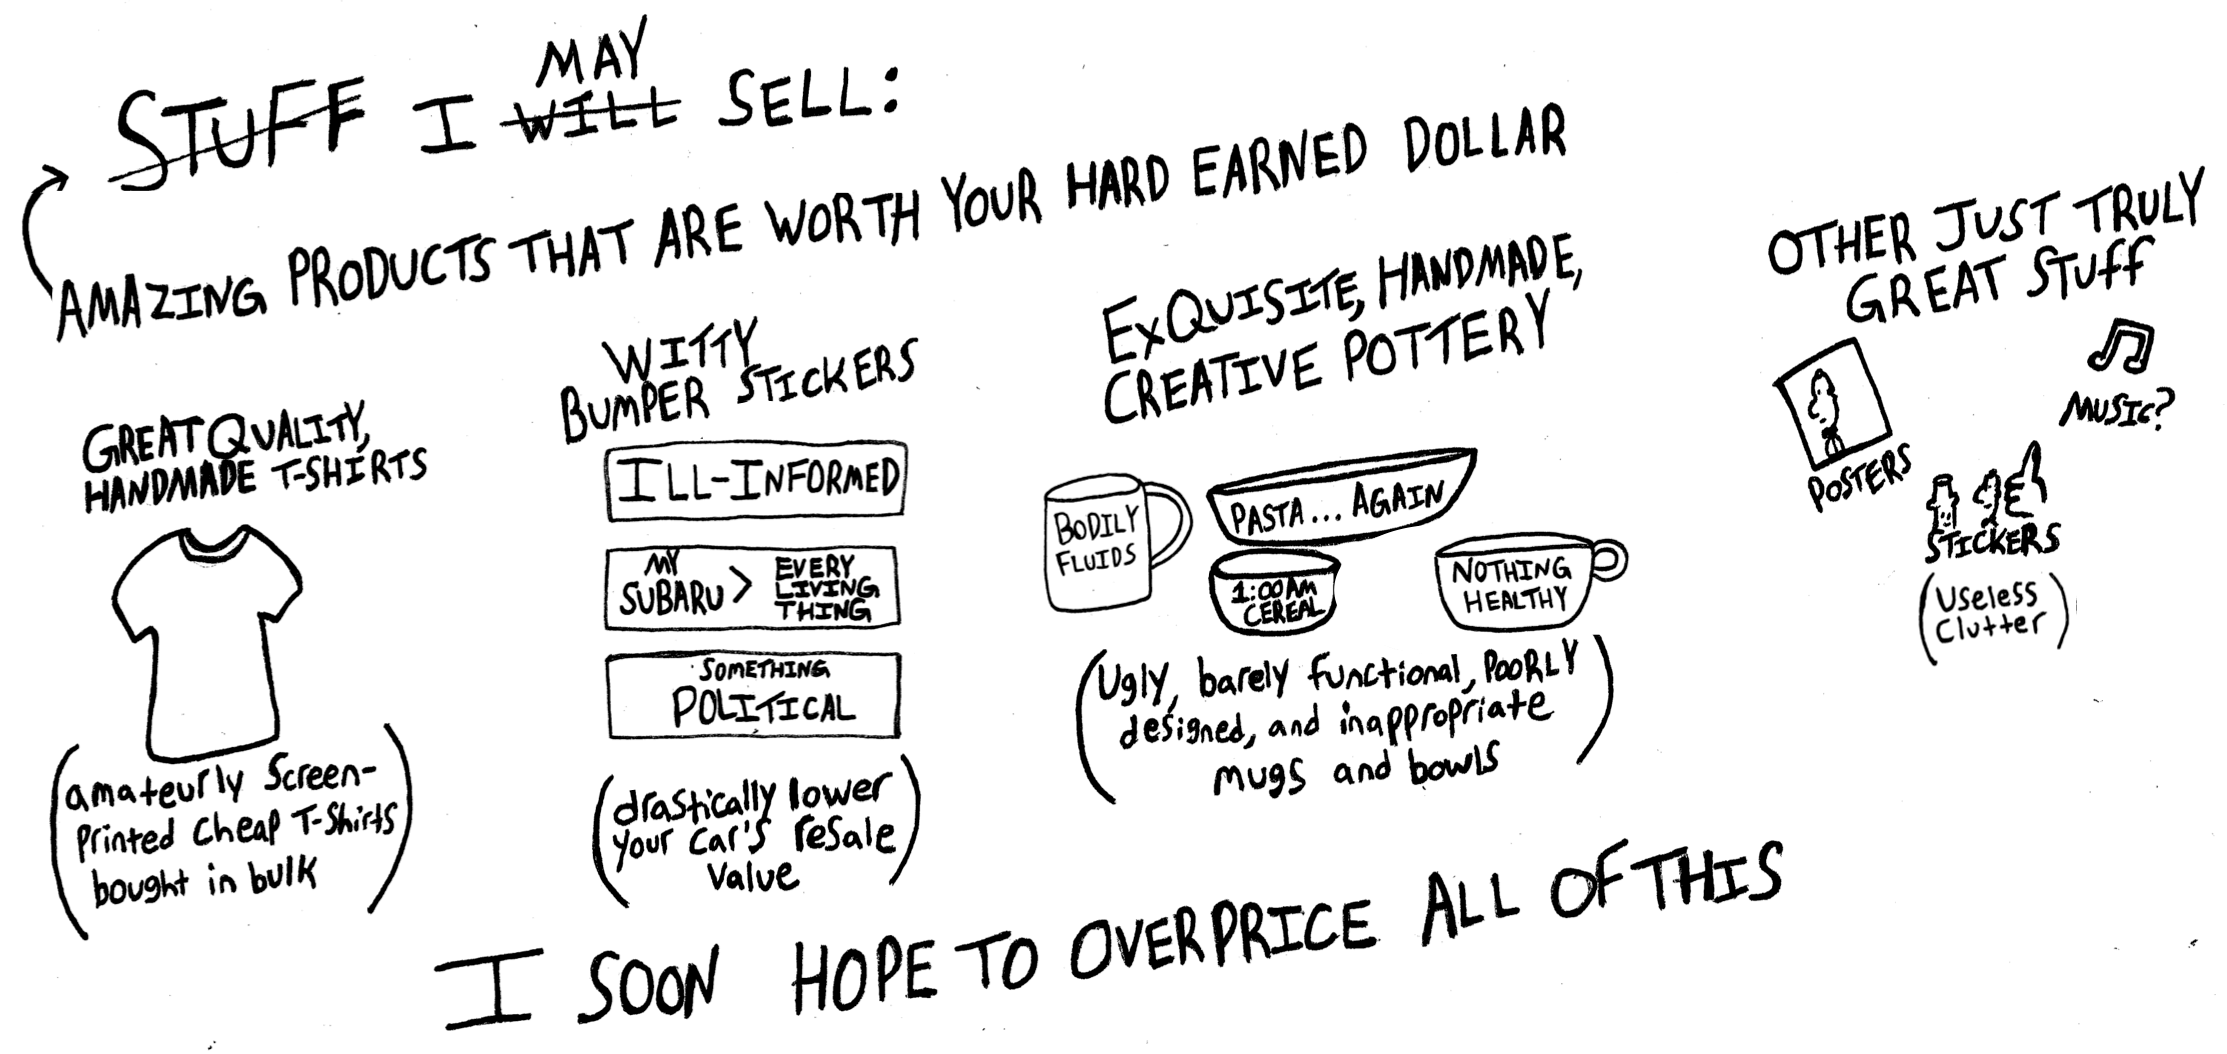 MAY
STUFF I WILL SELL:
AMAZING PRODUCTS THAT ARE WORTH YOUR HARD EARNED DOLLAR
GREAT QUALITY,
HANDMADE T-SHIRTS
(amateurly Screen-
Printed Cheap T-Shirts
bought in bulk)
WITTY
BUMPER STICKERS
ILL-INFORMED
MY
SUBARU > EVERY
LIVING
THING
SOMETHING
POLITICAL
(drastically lower
your Car's resale
Value)
EXQUISITE, HANDMADE,
CREATIVE POTTERY
BODILY
FLUIDS
PASTA... AGAIN
1:00AM
CEREAL
NOTHING
HEALTHY
(Ugly, barely functional, POORLY
designed, and inappropriate
mugs and bowls)
OTHER JUST TRULY
GREAT STUFF
POSTERS
MUSIC?
STICKERS
(Useless
Clutter)
I SOON HOPE TO OVERPRICE ALL OF THIS